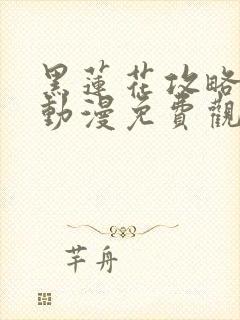 黑蓮花攻略
動漫免費觀
芊舟